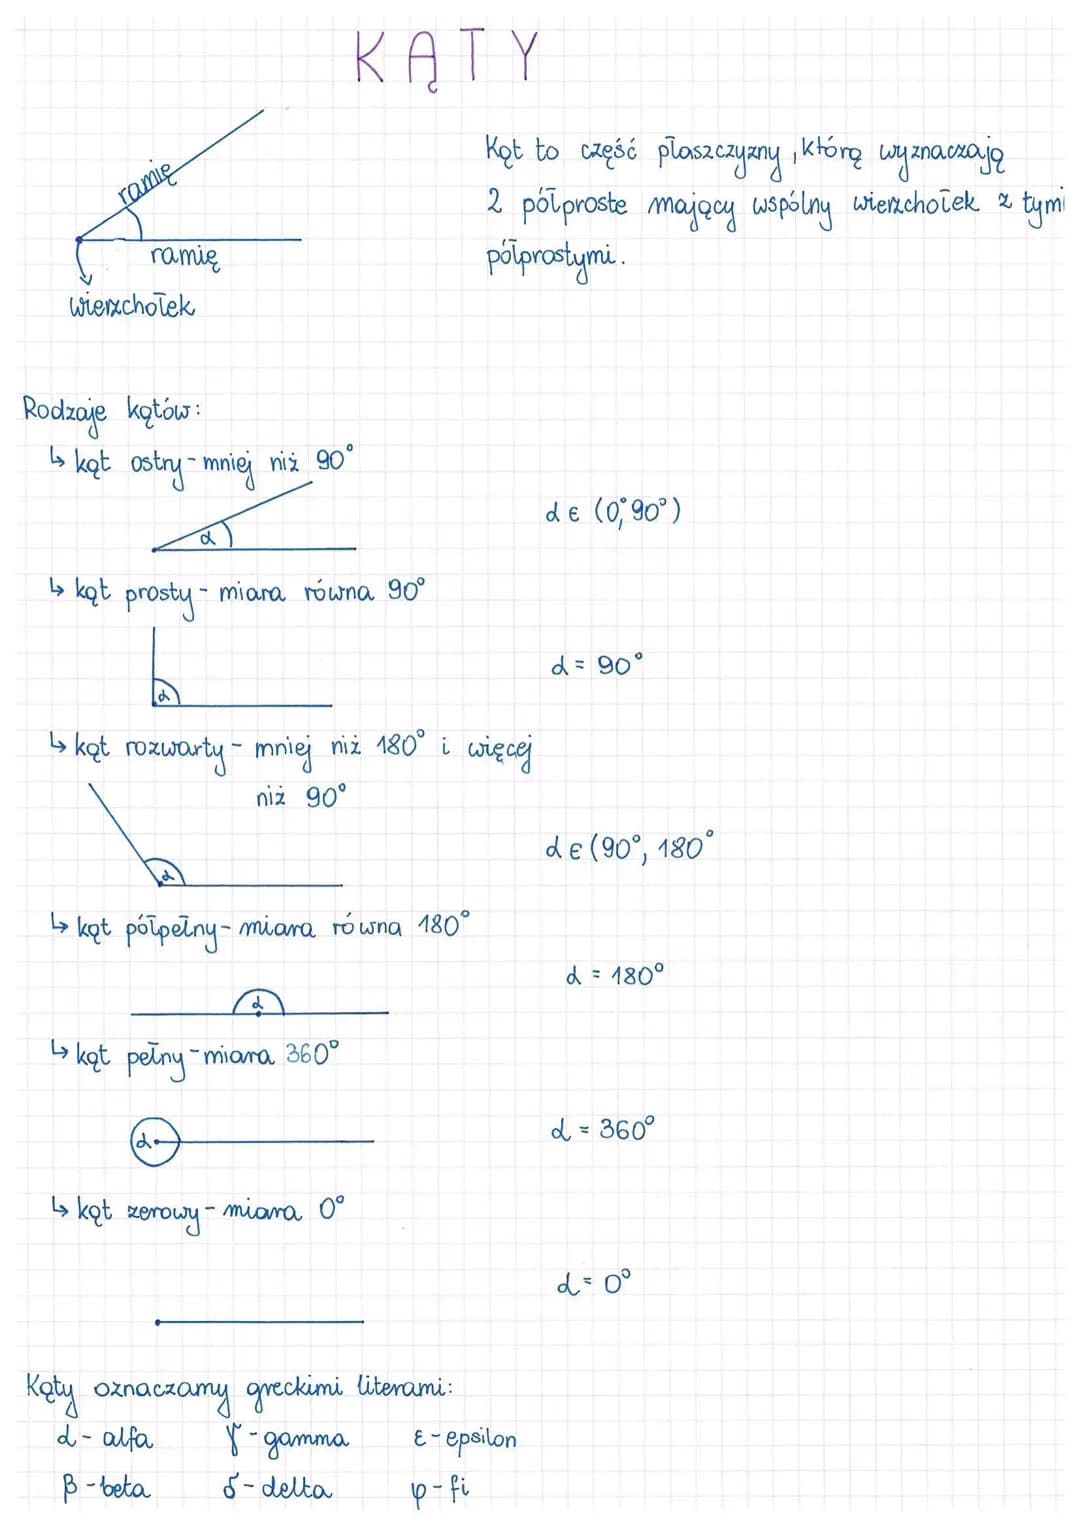 KĄTY
ramię
ramię
wierzchołek
Kąt to część płaszczyzny, którą wyznaczają
2 półproste mający wspólny wierzchołek z tymi
półprostymi.
Rodzaje kątów:
↳ kąt ostry - mniej niż 90°
α
α ∈ (0°,90°)
↳ kąt prosty - miara równa 90°
α
α = 90°
↳ kąt rozwarty - mniej niż 180° i więcej
niż 90°
α
α ∈ (90°, 180°
↳ kąt półpełny - miara równa 180°
α
α = 180°
↳ kąt pełny - miara 360°
α
α = 360°
↳ kąt zerowy - miara 0°
α = 0°
Kąty oznaczamy greckimi literami:
α - alfa γ - gamma ε - epsilon
β - beta δ - delta φ - fi